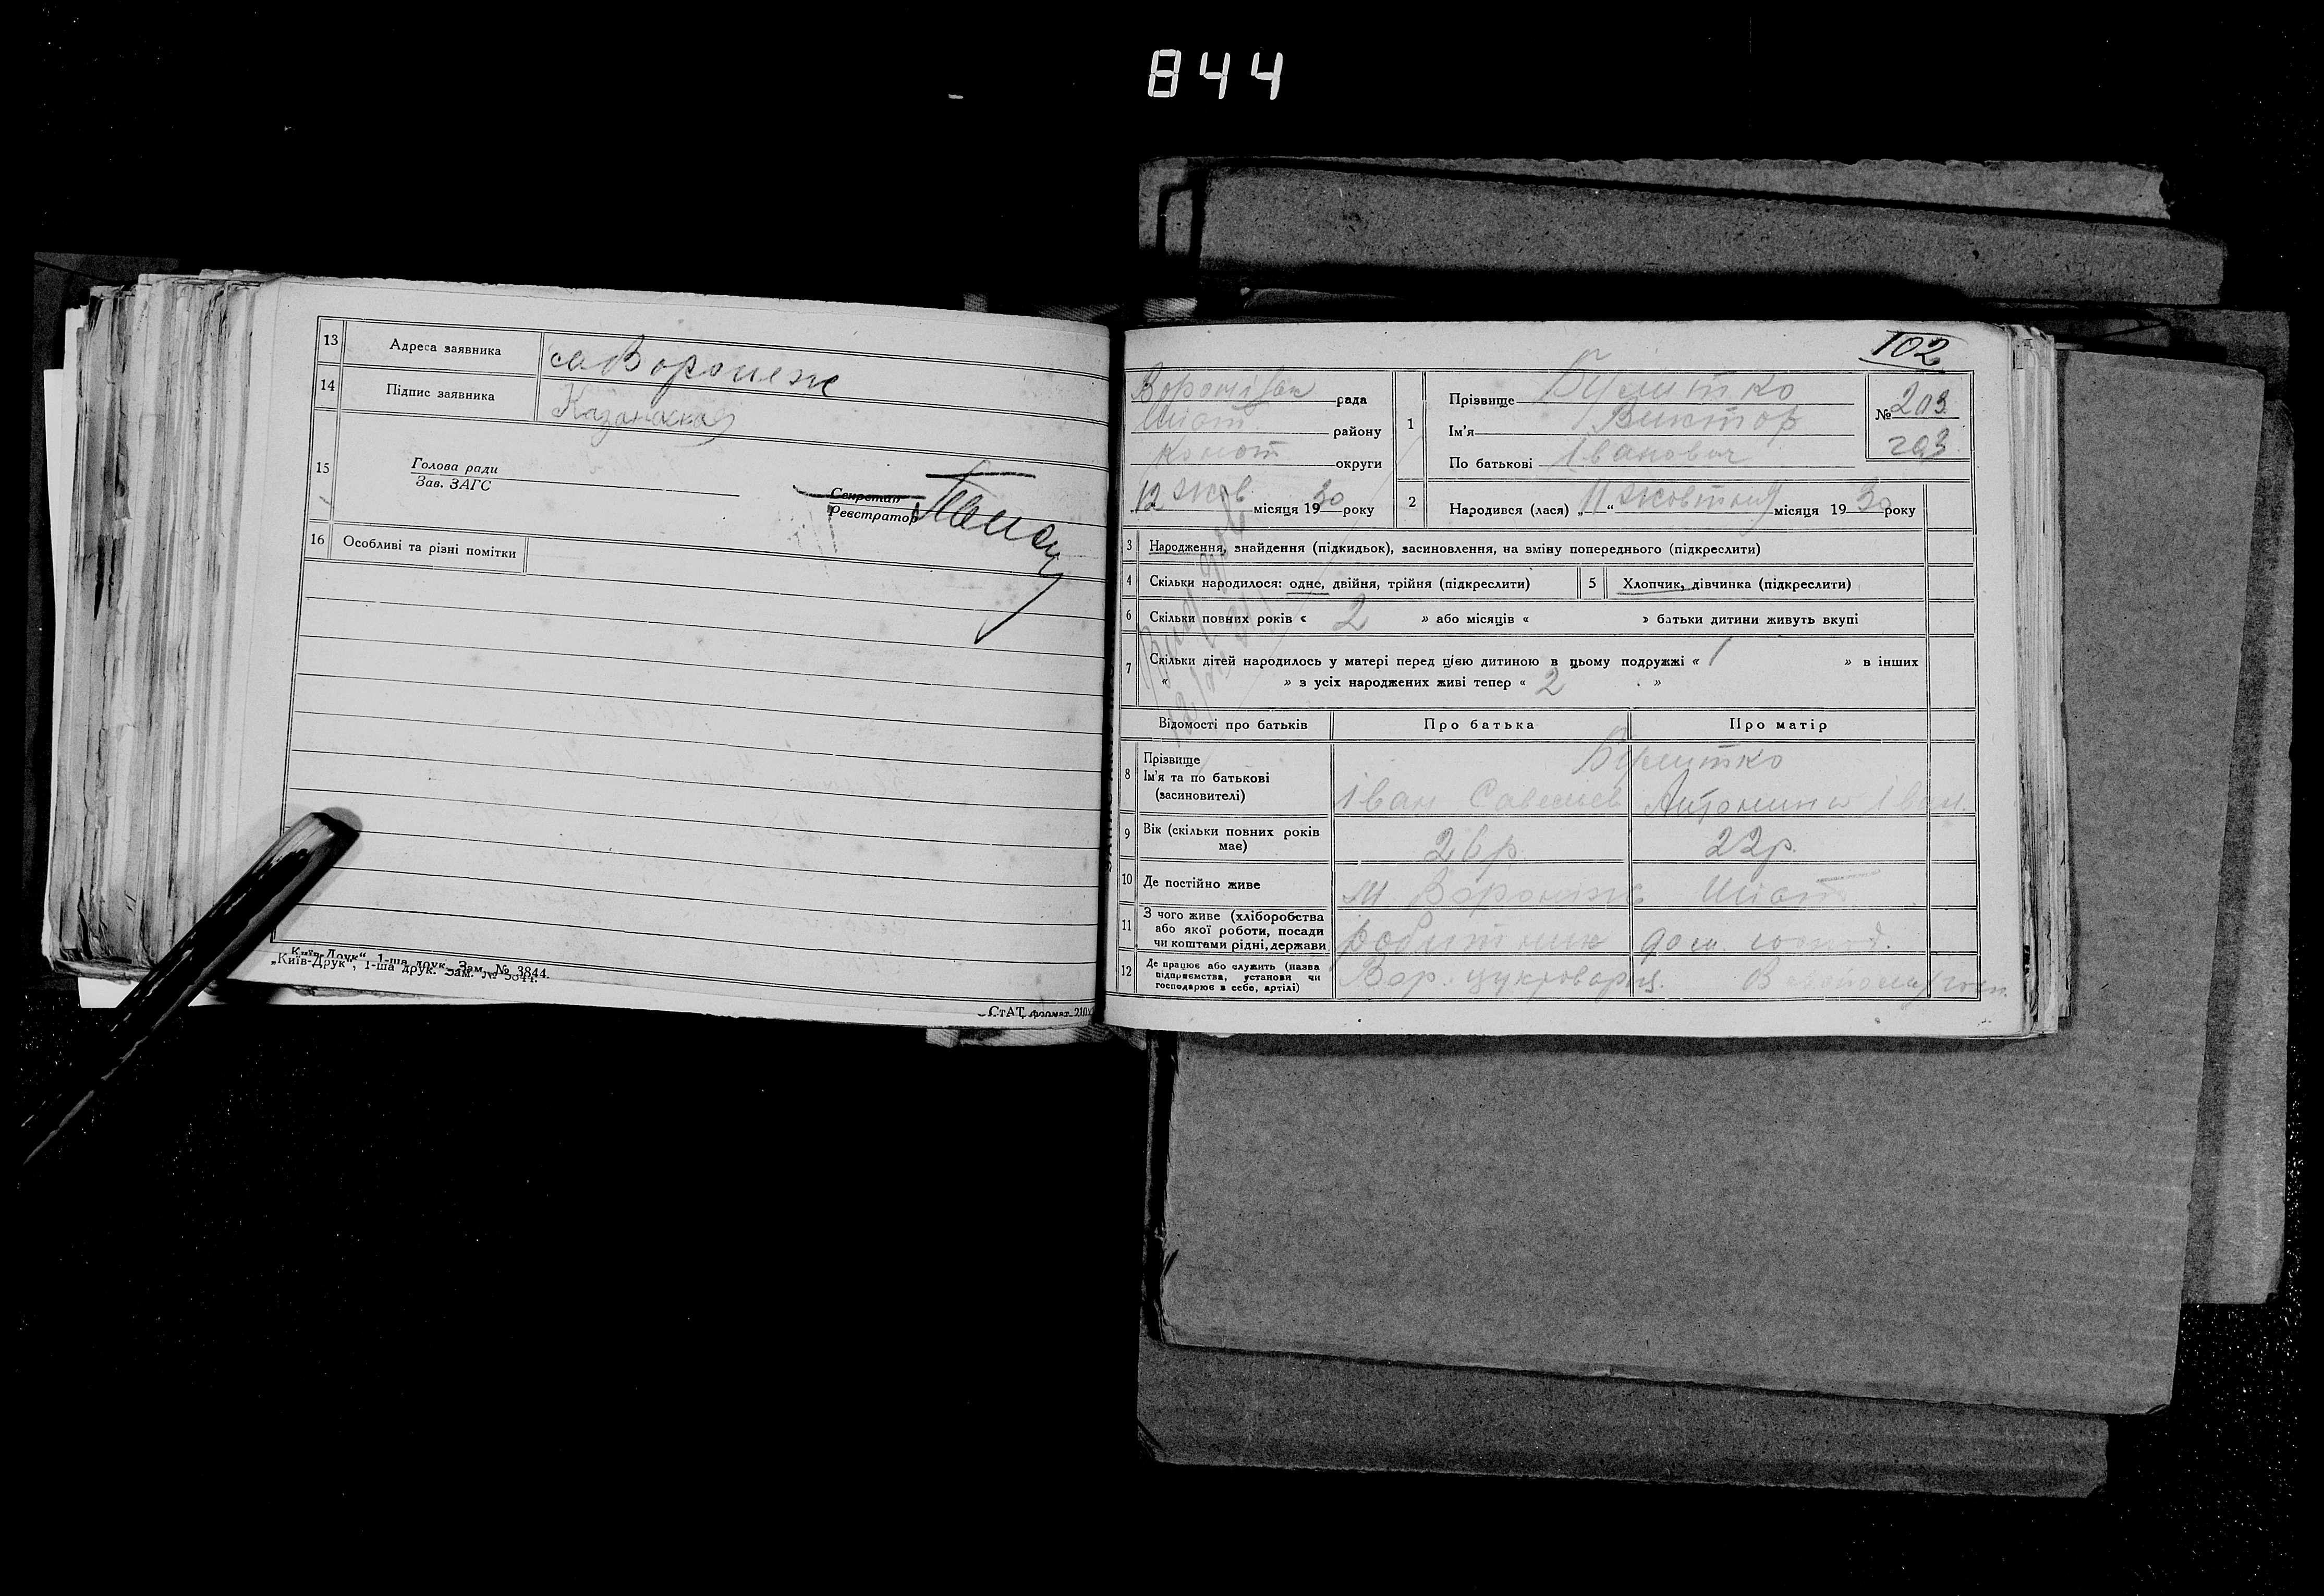 844
13 Адреса заявника с Воронеж
14 Підпис заявника Казанская
15 Голова ради
Зав. ЗАГС
Секретар
Реєстратор
16 Особливі та різні помітки
„Київ-Друк“, 1-ша друк. Зам. № 3844.
„Київ-Друк“, 1-ша друк. Зам. № 3844.
СтАТ формат 210
102
рада
Шіст. району
Конот округи
12 жов місяця 1930 року
1 Прізвище
Ім'я Виктор
По батькові Іванович
№ 203
203
2 Народився (лася) „11“ жовтня місяця 1930 року
3 Народження, знайдення (підкидьок), засиновлення, на зміну попереднього (підкреслити)
4 Скільки народилося: одне, двійня, трійня (підкреслити) 5 Хлопчик, дівчинка (підкреслити)
6 Скільки повних років « 2 » або місяців « » батьки дитини живуть вкупі
7 Скільки дітей народилось у матері перед цією дитиною в цьому подружжі « 1 » в інших
« » з усіх народжених живі тепер « 2 »
Відомості про батьків Про батька Про матір
8 Прізвище
Ім'я та по батькові
(засиновителі)
Іван Савельев Антонина Іван.
9 Вік (скільки повних років
має)
26 р 22 р.
10 Де постійно живе м. Вороніж Шіст
11 З чого живе (хліборобства
або якої роботи, посади
чи коштами рідні, держави
робитник дом. господ.
12 Де працює або служить (назва
підприємства, установи чи
господарює в себе, артілі)
Вор. цукроварня.